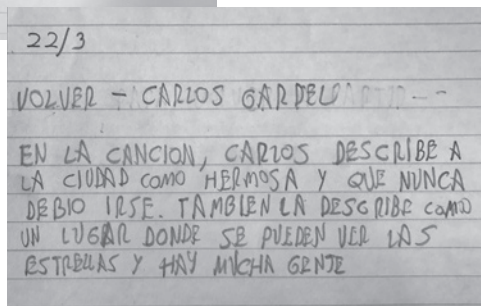 22/3
VOLVER - CARLOS GARDEL
EN LA CANCION, CARLOS DESCRIBE A
LA CIUDAD COMO HERMOSA Y QUE NUNCA
DEBIO IRSE. TAMBIEN LA DESCRIBE COMO
UN LUGAR DONDE SE PUEDEN VER LAS
ESTRELLAS Y HAY MUCHA GENTE